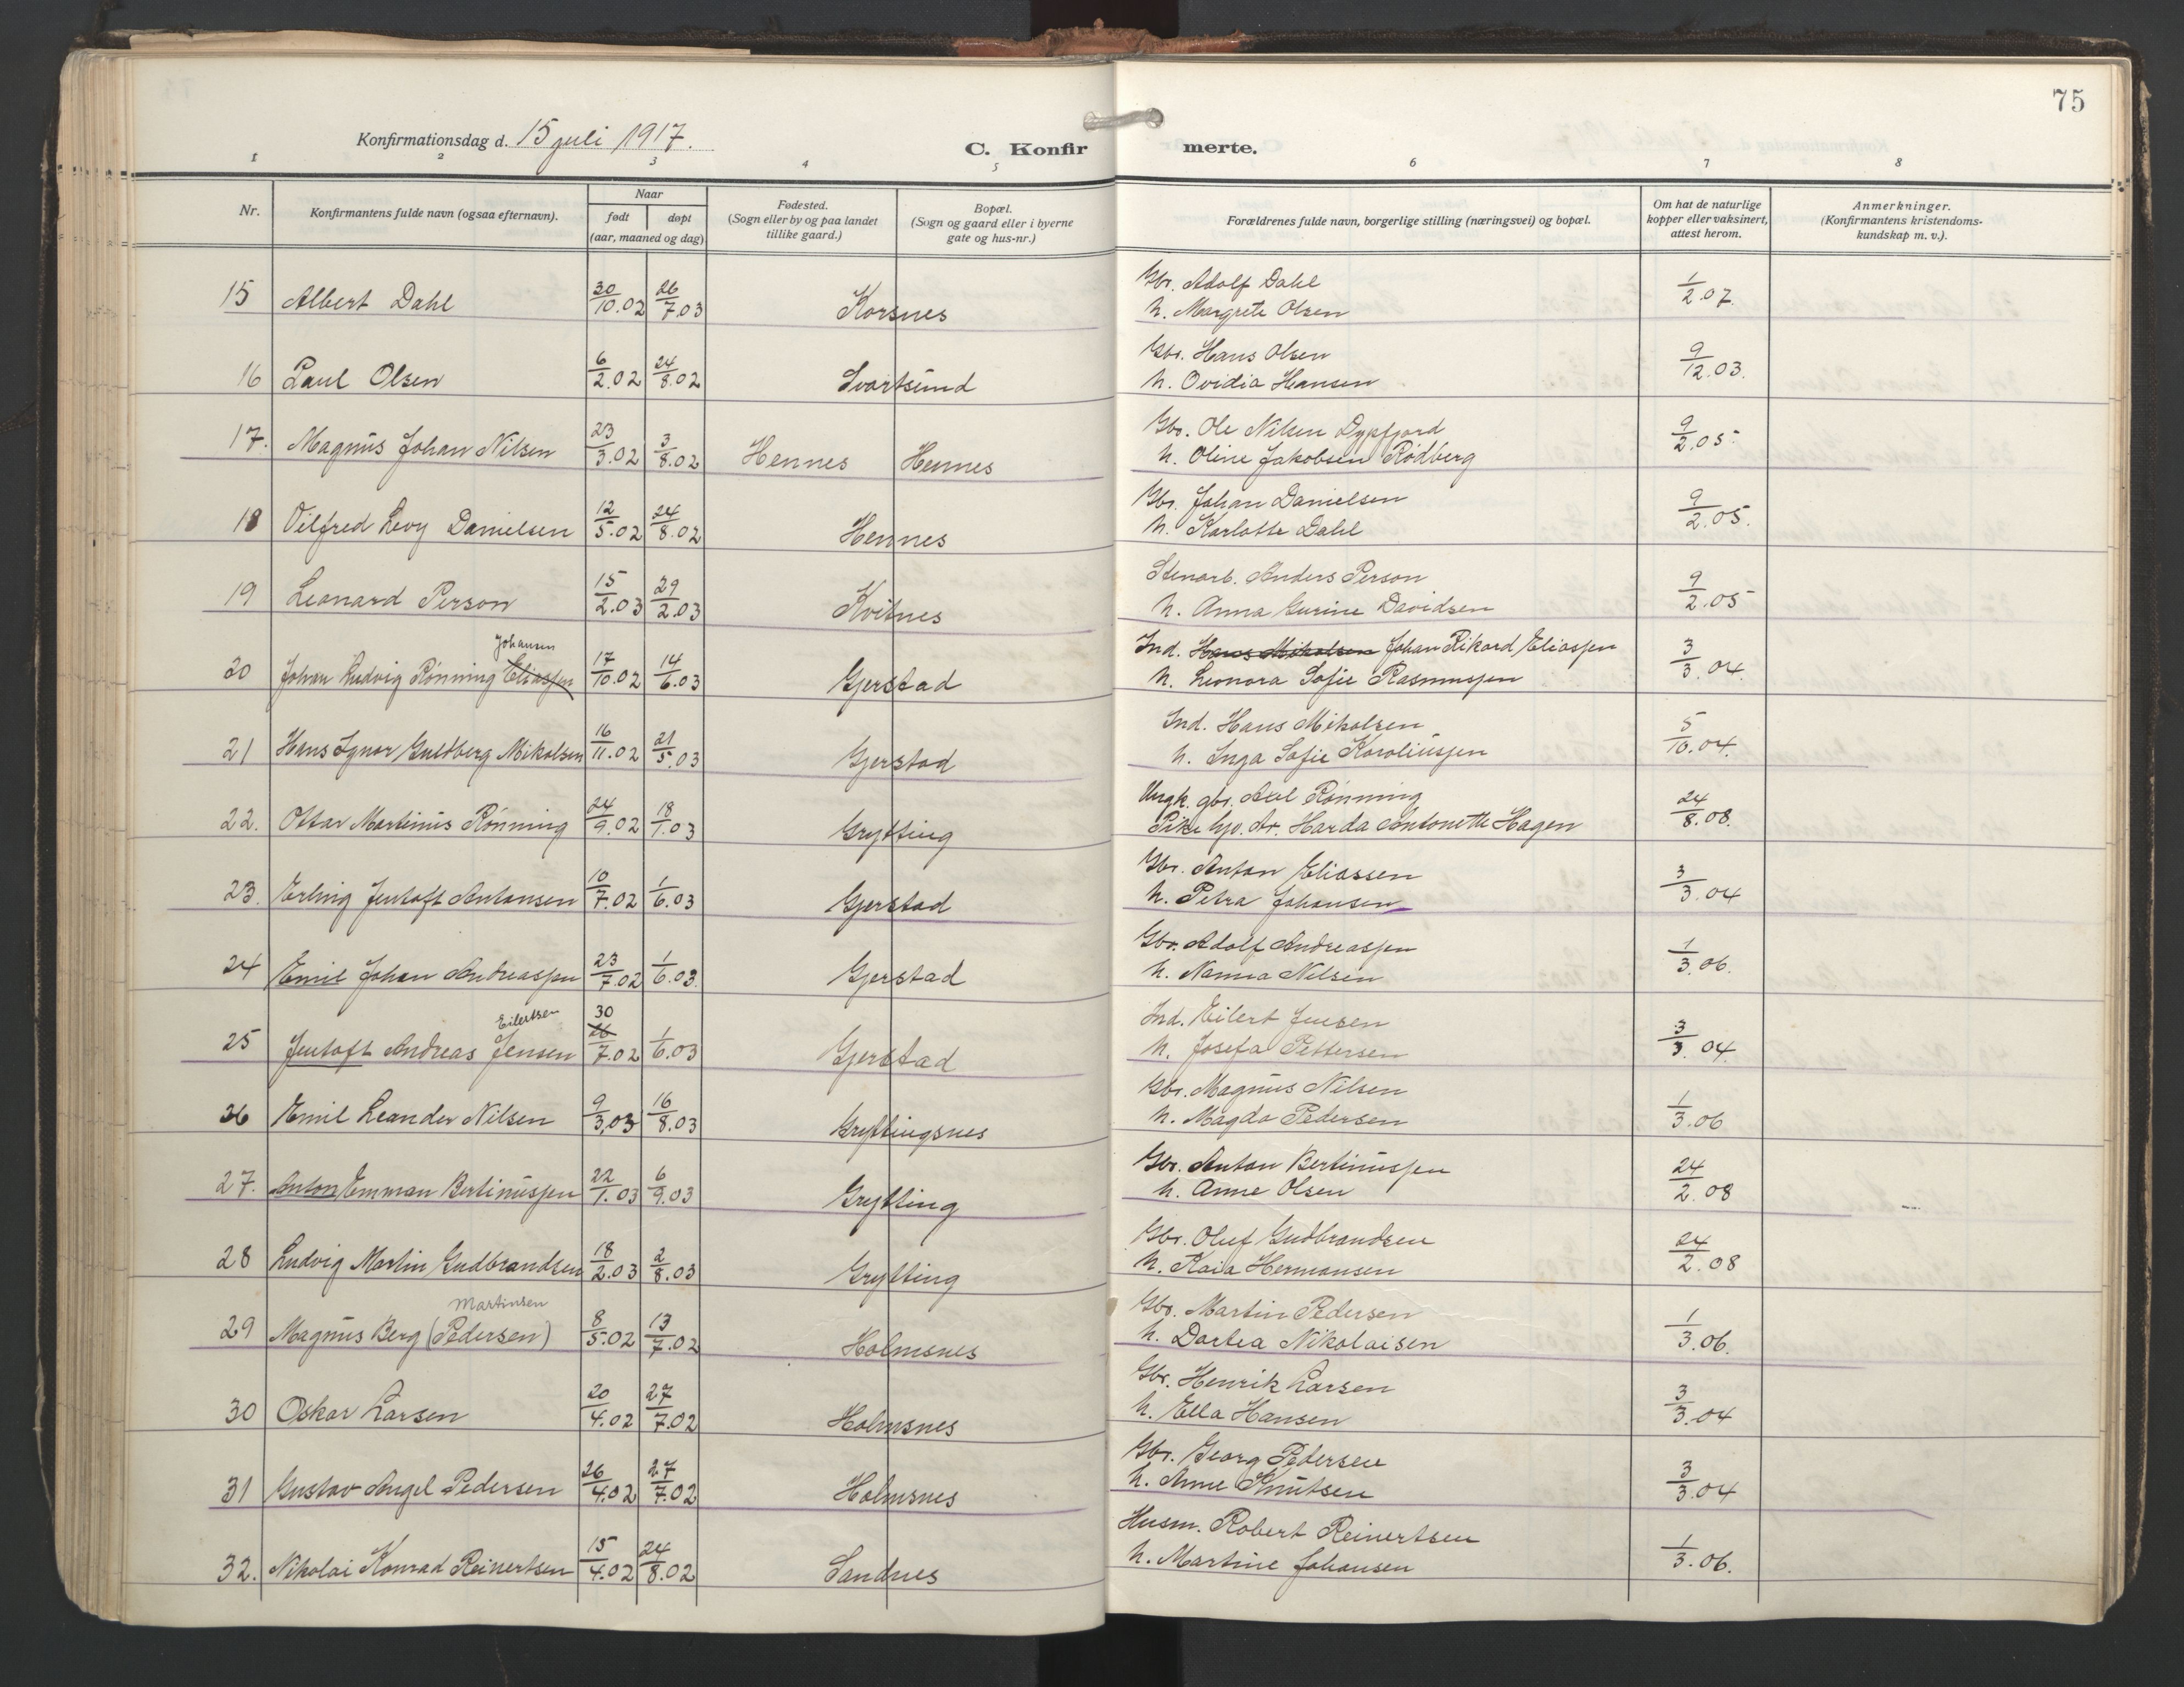 75
Konfirmationsdag d. 15 juli 1917.
C. Konfirmerte.
1 2 3 4 5 6 7 8
Nr. | Konfirmantens fulde navn (ogsaa efternavn). | Naar født døpt (aar, maaned og dag) | Fødested. (Sogn eller by og paa landet tillike gaard.) | Bopæl. (Sogn og gaard eller i byerne gate og hus-nr.) | Forældrenes fulde navn, borgerlige stilling (næringsvei) og bopæl. | Om hat de naturlige kopper eller vaksinert, attest herom. | Anmerkninger. (Konfirmantens kristendomskundskap m. v.).
15 Albert Dahl 30/10.02 26/7.03 Korsnes Gbr. Adolf Dahl 1/2.07.
h. Margrete Olsen
16 Paul Olsen 6/2.02 24/8.02 Svartsund Gbr. Hans Olsen 9/12.03.
h. Ovidia Hansen
17. Magnus Johan Nilsen 23/3.02 3/8.02 Hennes Hennes Gbr. Ole Nilsen Dypfjord 9/2.05.
h. Oline Jakobsen Rødberg
18 Vilfred Levy Danielsen 12/5.02 24/8.02 Hennes Gbr. Johan Danielsen 9/2.05.
h. Karlotte Dahl
19 Leonard Person 15/2.03 29/2.03 Kvitnes Stenarb. Anders Person 9/2.05
h. Anna Gurine Davidsen
Johansen
20 Johan Ludvig Rønning Eliassen 17/10.02 14/6.03 Gjerstad Ind. Hans Mikalsen Johan Rikard Eliassen 3/3.04.
h. Leonora Sofie Rasmussen
21 Hans Ignor Guldberg Mikalsen 16/11.02 21/5.03 Gjerstad Ind. Hans Mikalsen 5/10.04.
h. Inga Sofie Karoliussen
22. Ottar Martinus Rønning 24/9.02 18/1.03 Grytting Ungk. gbr. Axel Rønning 24/8.08.
Pike Harda Antonette Hagen
23. Erling Jentoft Antonsen 10/7.02 1/6.03 Gjerstad Gbr. Anton Eliassen 3/3.04
h. Petra Johansen
24 Emil Johan Andreassen 23/7.02 1/6.03. Gjerstad Gbr. Adolf Andreassen 1/3.06.
h. Nanna Nilsen
Eilertsen 30
25 Jentoft Andreas Jensen 26/7.02 1/6.03 Gjerstad Ind. Eilert Jensen 3/3.04.
h. Josefa Pettersen
26 Emil Leander Nilsen 9/3.03 16/8.03 Gryttingsnes Gbr. Magnus Nilsen 1/3.06
h. Magda Pedersen
27. Anton Emman Bertinussen 22/1.03 6/9.03 Grytting Gbr. Anton Bertinussen 24/2.08
h. Anne Olsen
28 Ludvig Martin Gudbrandsen 18/2.03 2/8.03 Grytting Gbr. Oluf Gudbrandsen 24/2.08
h. Kaia Hermansen
Martinsen
29 Magnus Berg (Pedersen) 8/5.02 13/7.02 Holmsnes Gbr. Martin Pedersen 1/3.06.
h. Dortea Nikolaisen
30 Oskar Larsen 20/4.02 27/7.02 Holmsnes Gbr. Henrik Larsen 3/3.04
h. Ella Hansen
31 Gustav Angel Pedersen 26/4.02 27/7.02 Holmsnes Gbr. Georg Pedersen 3/3.04
h. Anne Knutsen
32. Nikolai Konrad Reinertsen 15/4.02 24/8.02 Sandnes Husm. Robert Reinertsen 1/3.06.
h. Martine Johansen